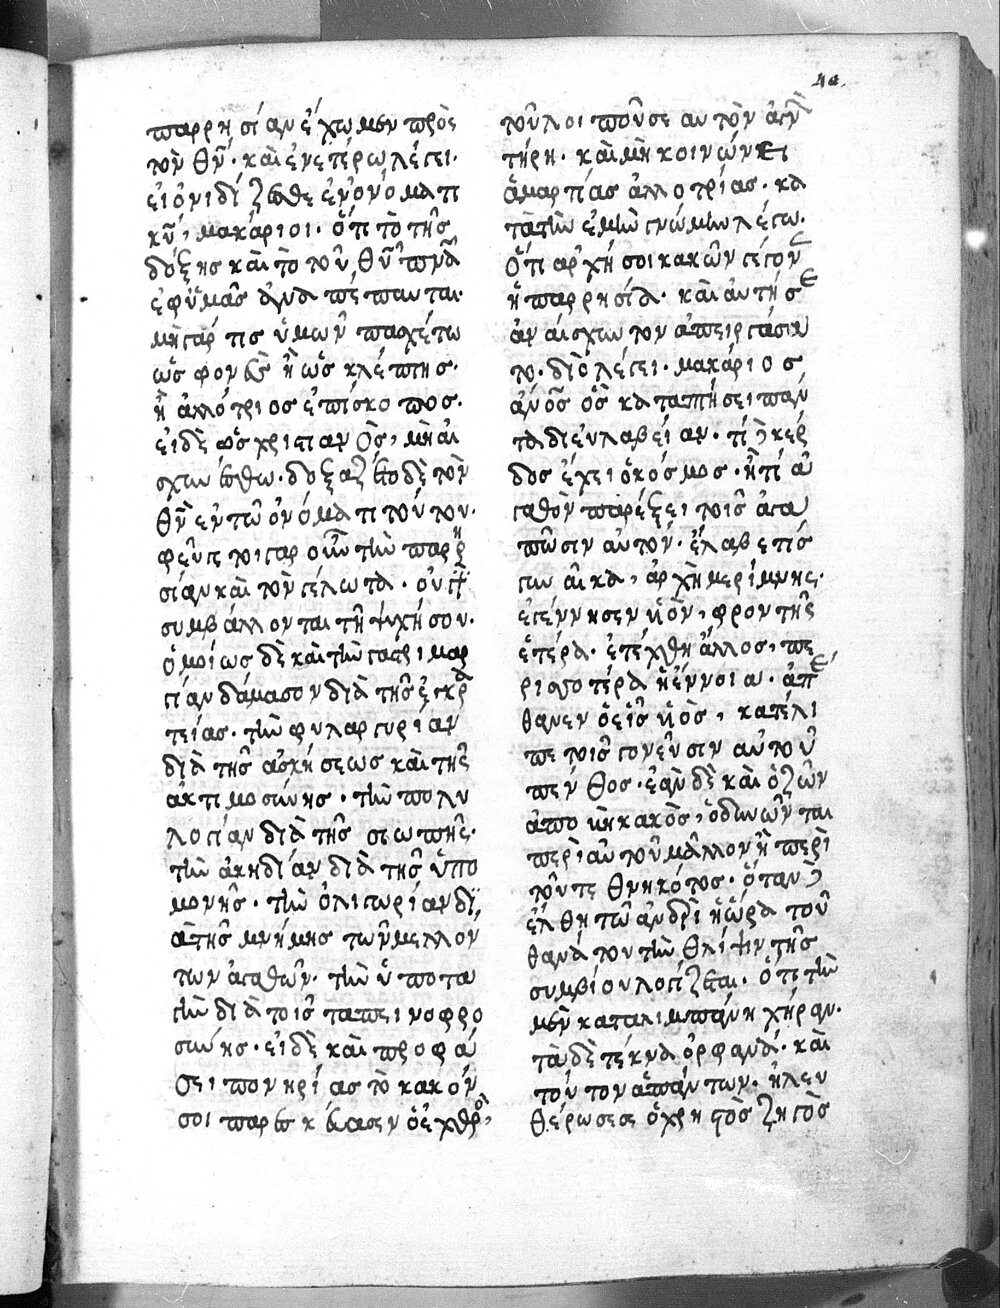 4α.
παρρησίαν ἔχωμεν πρὸς
τὸν θν̄· καὶ ἐν ἑτέρω λέγει·
εἰ ὀνιδίζεσθε ἐν ὀνόματι
κῡ, μακάριοι· ὅτι τὸ τῆς
δόξης καὶ τὸ τοῦ θῡ πνᾱ
ἐφ ὑμᾶς ἀναπέπαυται·
μὴ γάρ τις ὑμῶν πασχέτω
ὡς φονεὺς ἢ ὡς κλέπτης·
ἢ ἀλλότριος ἐπίσκοπος·
εἰ δὲ ὡς χριστιανὸς, μὴ αἰ
σχυνέσθω· δοξαζέτω δὲ τὸν
θν̄ ἐν τῶ ὀνόματι τούτου·
φεῦγε τοιγαροῦν τὴν παρρη
σίαν καὶ τὸν γέλωτα· οὐ γὰρ
συμβάλλονται τῆ ψυχή σου·
ὁμοίως δὲ καὶ τὴν γαστριμαρ
γίαν δάμασον διὰ τῆς ἐγκρα
τείας· τὴν φυλαργυρίαν
διὰ τῆς ἀσκήσεως καὶ τῆς
ἀκτιμοσύνης· τὴν πολυ
λογίαν διὰ τῆς σιωπῆς·
τὴν ἀκηδίαν διὰ τῆς ὑπο
μονῆς· τὴν ὀλιγωρίαν δι
ὰ τῆς μνήμης τῶν μελλόν
των ἀγαθῶν· τὴν ὑποτα
γὴν διὰ τοῖς ταπεινοφρο
σύνης· εἰ δὲ καὶ προφά
σει πονηρίας τὸ κακόν
σοι παρεσκεύασεν ὁ ἐχθρὸς,
τοῦ λοιποῦ σεαυτὸν ἁγνὸν
τήρη· καὶ μὴ κοινώνει
ἁμαρτίας ἀλλοτρίας· κα
τὰ τὴν ἐμὴν γνώμην λέγω·
ὅτι ἀρχή σοι κακῶν γέγονε
ἡ παρρησία· καὶ αὐτή σε
ἀναίσχυντον ἀπειργάσα
το· διὸ λέγει· μακάριος
ἄνο̄ς ὃς καταπτήσει πάν
τα δι εὐλαβείαν· τί κέρ
δος ἔχει ὁ κόσμος· ἢ τί ἀ
γαθὸν παρέξει τοῖς ἀγα
πῶσιν αὐτόν· ἔλαβε τίς
γυναῖκα, ἀρχὴ μερίμνης·
ἐγέννησεν υἱὸν, φροντὴς
ἑτέρα· ἐτέχθη ἄλλος, πε
ρισσοτέρα ἡ ἔννοια· ἀπέ
θανεν ὁ εἷς υἱὸς, κατέλι
πε τοῖς γονεῦσιν αὐτοῦ
πένθος· ἐὰν δὲ καὶ ὁ ζῶν
ἀποβῆ κακὸς, ὀδυνῶνται
περὶ αὐτοῦ μᾶλλον ἢ περὶ
τοῦ τεθνηκότος· ὅταν
ἔλθη τῶ ἀνδρὶ ἡ ὥρα τοῦ
θανάτου τὴν θλίψιν τῆς
συμβίου λογίζεται· ὅτι τὴν
μὲν καταλιμπάνη χήραν·
τὰ δὲ τέκνα ὀρφανά· καὶ
τούτον ἁπάντων· ἠλευ
θέρωσέ σε ὁ χρηστὸς ζυγὸς